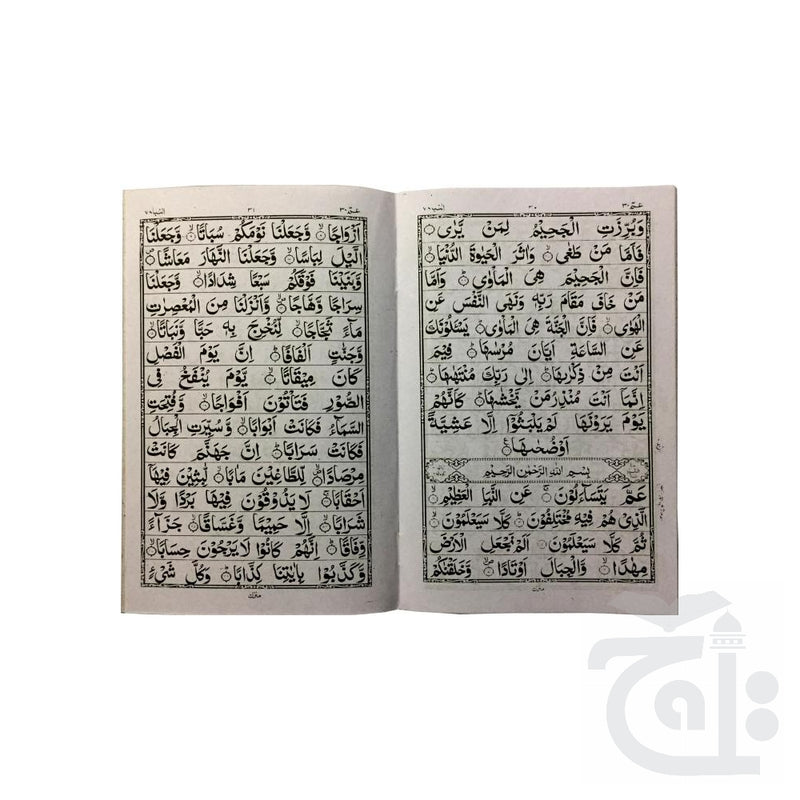 عمّ ٣٠
٣٠
النبا ٧٨
وَبُرِّزَتِ الْجَحِيْمُ لِمَنْ يَّرٰى
فَاَمَّا مَنْ طَغٰى وَاٰثَرَ الْحَيٰوةَ الدُّنْيَا
فَاِنَّ الْجَحِيْمَ هِيَ الْمَاْوٰى وَاَمَّا
مَنْ خَافَ مَقَامَ رَبِّهٖ وَنَهَى النَّفْسَ عَنِ
الْهَوٰى فَاِنَّ الْجَنَّةَ هِيَ الْمَاْوٰى يَسْـَٔلُوْنَكَ
عَنِ السَّاعَةِ اَيَّانَ مُرْسٰىهَا فِيْمَ
اَنْتَ مِنْ ذِكْرٰىهَا اِلٰى رَبِّكَ مُنْتَهٰىهَا
اِنَّمَا اَنْتَ مُنْذِرُ مَنْ يَّخْشٰىهَا كَاَنَّهُمْ
يَوْمَ يَرَوْنَهَا لَمْ يَلْبَثُوْٓا اِلَّا عَشِيَّةً
اَوْ ضُحٰىهَا
بِسْمِ اللّٰهِ الرَّحْمٰنِ الرَّحِيْمِ
عَمَّ يَتَسَآءَلُوْنَ عَنِ النَّبَاِ الْعَظِيْمِ
الَّذِيْ هُمْ فِيْهِ مُخْتَلِفُوْنَ كَلَّا سَيَعْلَمُوْنَ
ثُمَّ كَلَّا سَيَعْلَمُوْنَ اَلَمْ نَجْعَلِ الْاَرْضَ
مِهٰدًا وَّالْجِبَالَ اَوْتَادًا وَّخَلَقْنٰكُمْ
عمّ ٣٠
٣١
النبا ٧٨
اَزْوَاجًا وَّجَعَلْنَا نَوْمَكُمْ سُبَاتًا وَّجَعَلْنَا
الَّيْلَ لِبَاسًا وَّجَعَلْنَا النَّهَارَ مَعَاشًا
وَّبَنَيْنَا فَوْقَكُمْ سَبْعًا شِدَادًا وَّجَعَلْنَا
سِرَاجًا وَّهَّاجًا وَّاَنْزَلْنَا مِنَ الْمُعْصِرٰتِ
مَآءً ثَجَّاجًا لِّنُخْرِجَ بِهٖ حَبًّا وَّنَبَاتًا
وَّجَنّٰتٍ اَلْفَافًا اِنَّ يَوْمَ الْفَصْلِ
كَانَ مِيْقَاتًا يَّوْمَ يُنْفَخُ فِي
الصُّوْرِ فَتَاْتُوْنَ اَفْوَاجًا وَّفُتِحَتِ
السَّمَآءُ فَكَانَتْ اَبْوَابًا وَّسُيِّرَتِ الْجِبَالُ
فَكَانَتْ سَرَابًا اِنَّ جَهَنَّمَ كَانَتْ
مِرْصَادًا لِّلطَّاغِيْنَ مَاٰبًا لّٰبِثِيْنَ فِيْهَآ
اَحْقَابًا لَا يَذُوْقُوْنَ فِيْهَا بَرْدًا وَّلَا
شَرَابًا اِلَّا حَمِيْمًا وَّغَسَّاقًا جَزَآءً
وِّفَاقًا اِنَّهُمْ كَانُوْا لَا يَرْجُوْنَ حِسَابًا
وَّكَذَّبُوْا بِاٰيٰتِنَا كِذَّابًا وَكُلَّ شَيْءٍ